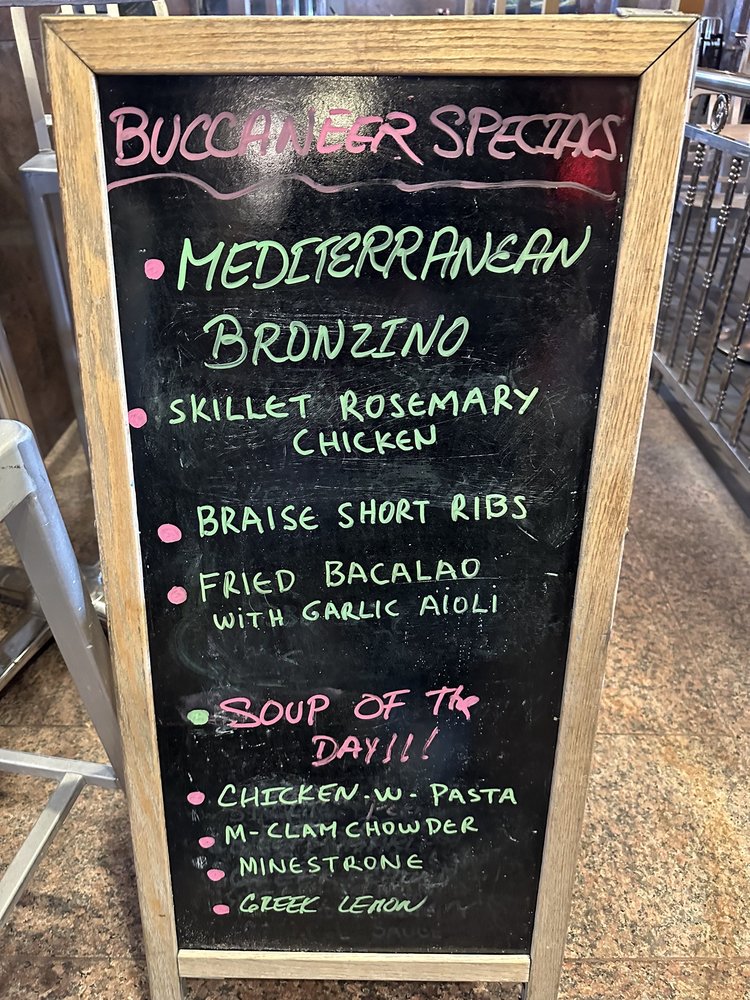 BUCCANEER SPECIALS
• MEDITERRANEAN
BRONZINO
• SKILLET ROSEMARY
CHICKEN
• BRAISE SHORT RIBS
• FRIED BACALAO
WITH GARLIC AIOLI
• SOUP OF The
DAY!!!
• CHICKEN-W-PASTA
• M-CLAM CHOWDER
• MINESTRONE
• GREEK LEMON